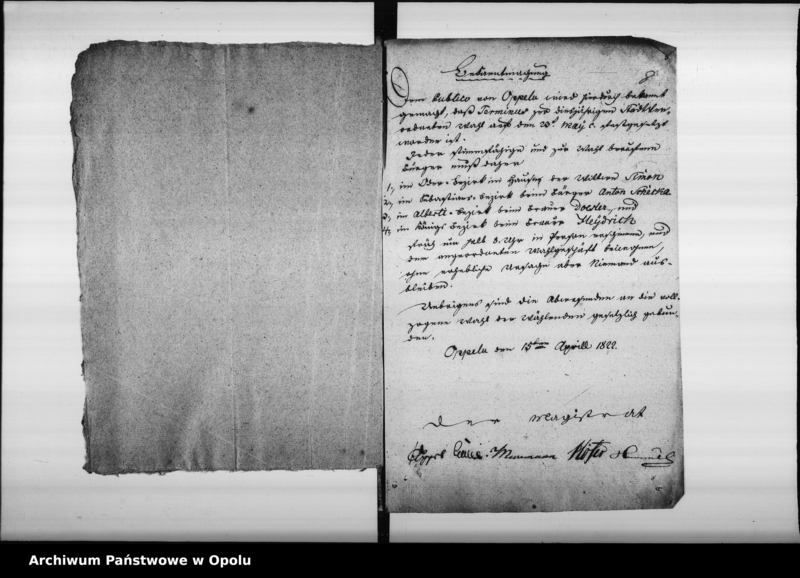 Bekanntmachung
8
Dem Publico von Oppeln wird hierdurch bekannt
gemacht, daß Terminus zur diesjährigen Stadtver-
ordneten Wahl auf den 23t May c. festgesetzt
worden ist.
Jeder stimmfähige und zur Wahl berechtigte
Bürger muß daher
1, im Oder-Bezirk im Hause der Wittwe Simon
2, im Sebastians-bezirk beim Bürger Anton
3, im Alberti-bezirk beim Brauer und
4, im Königs bezirk beim Brauer Heydrich
früh um halb 8. Uhr in Person erscheinen, und
dem angeordneten Wahlgeschäft beiwohnen,
ohne erhebliche Ursache aber Niemand aus-
bleiben.
Uebrigens sind die Abwesenden an die voll-
zogene Wahl der Wählenden gesetzlich gebun-
den.
Oppeln den 15ten Aprill 1822.
der Magistrat
Höfer
Archiwum Państwowe w Opolu